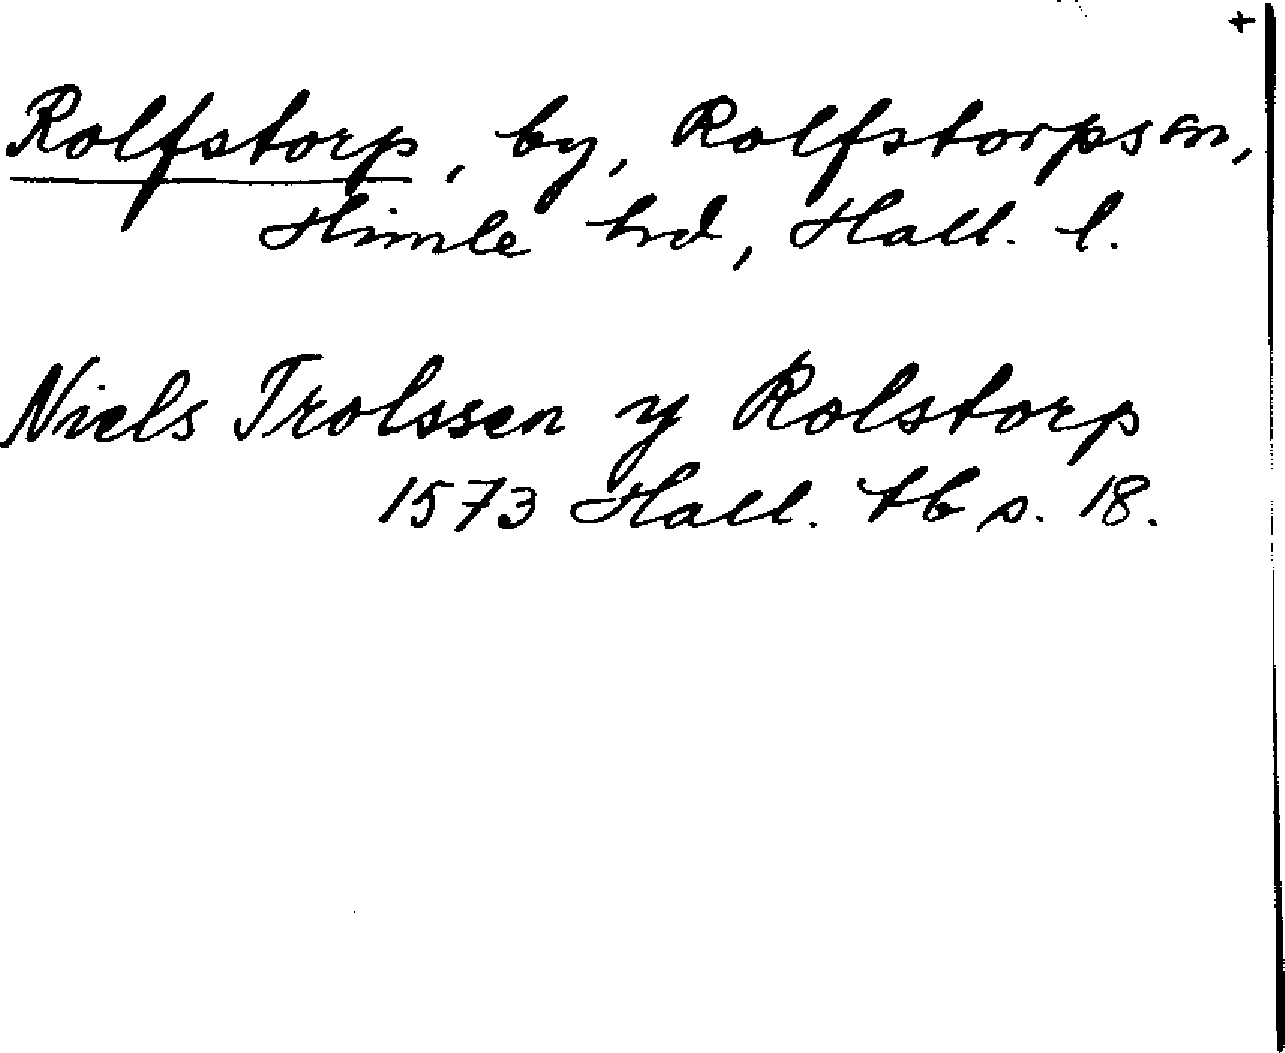 +
Rolfstorp, by, Rolfstorps sn,
Himle hd, Hall. l.
Niels Trolssen y Rolstorp
1573 Hall. tb s. 18.